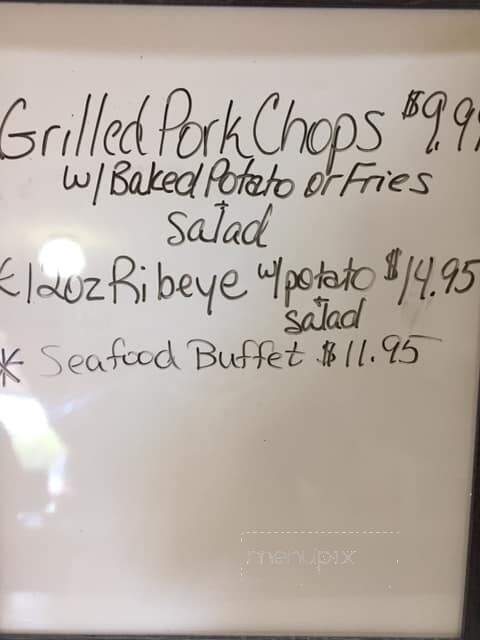 Grilled Pork Chops $9.99
w/Baked Potato or Fries
+
salad
* 12oz Ribeye w/potato $14.95
+
salad
* Seafood Buffet $11.95
menupix